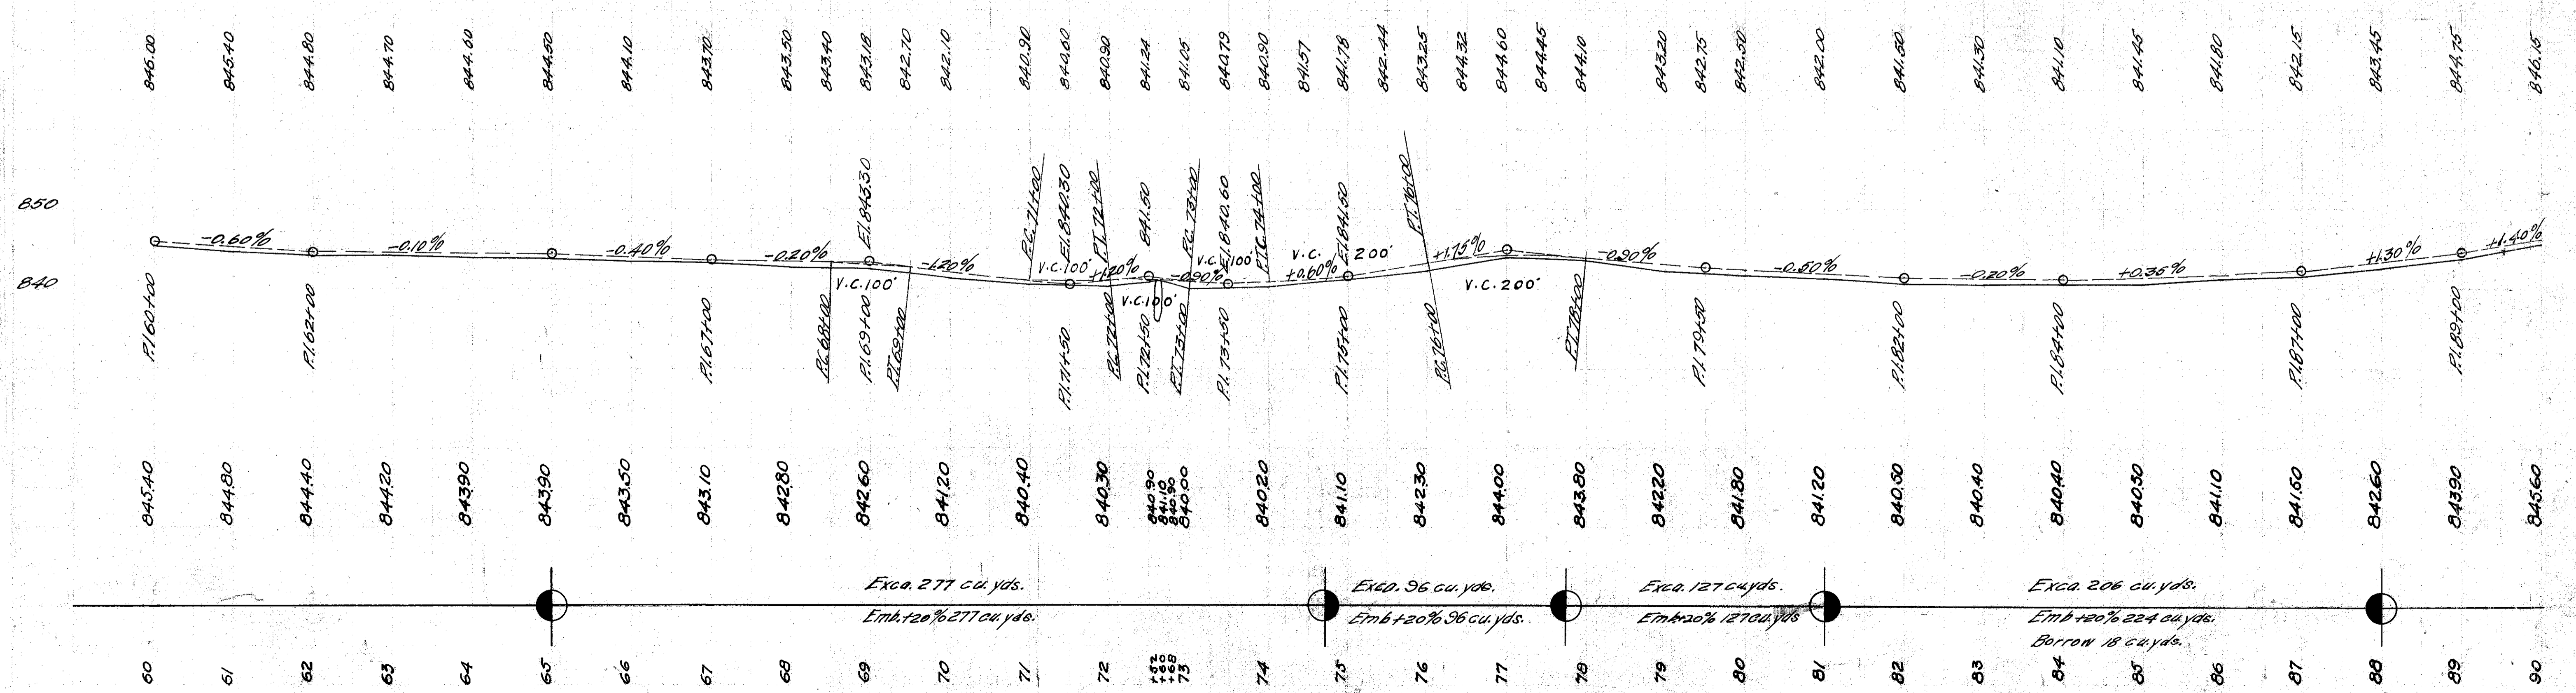 846.00 845.40 844.80 844.70 844.60 844.50 844.10 843.70 843.50 843.40 843.18 842.70 842.10 840.90 840.60 840.90 841.24 841.05 840.79 840.90 841.57 841.78 842.44 843.25 844.32 844.60 844.45 844.10 843.20 842.75 842.50 842.00 841.50 841.30 841.10 841.45 841.80 842.15 843.45 844.75 846.15
850
840
El.843.30 P.C.71+00 El.840.30 P.T.72+00 841.50 P.C.73+00 El.840.60 P.T.C.74+00 El.841.50 P.T.76+00
-0.60% -0.10% -0.40% -0.20% -1.20% +1.20% -0.90% +0.60% +1.75% -0.90% -0.50% -0.20% +0.35% +1.30% +1.40%
V.C.100' V.C.100' V.C.100' V.C.100' V.C. 200' V.C.200'
P.I.60+00 P.I.62+00 P.I.67+00 P.C.68+00 P.I.69+00 P.T.69+00 P.I.71+50 P.C.72+00 P.I.72+50 P.T.73+00 P.I.73+50 P.I.75+00 P.C.76+00 P.T.78+00 P.I.79+50 P.I.82+00 P.I.84+00 P.I.87+00 P.I.89+00
845.40 844.80 844.40 844.20 843.90 843.90 843.50 843.10 842.80 842.60 841.20 840.40 840.30 840.90 841.10 840.90 840.00 840.20 841.10 842.30 844.00 843.80 842.20 841.80 841.20 840.50 840.40 840.40 840.50 841.10 841.50 842.60 843.90 845.60
Exca. 277 cu.yds. Exca. 96 cu.yds. Exca. 127 cu.yds. Exca. 206 cu.yds.
Emb.+20% 277 cu.yds. Emb+20% 96 cu.yds. Emb+20% 127 cu.yds Emb+20% 224 cu.yds.
Borrow 18 cu.yds.
60 61 62 63 64 65 66 67 68 69 70 71 72 +52 +60 +68 73 74 75 76 77 78 79 80 81 82 83 84 85 86 87 88 89 90